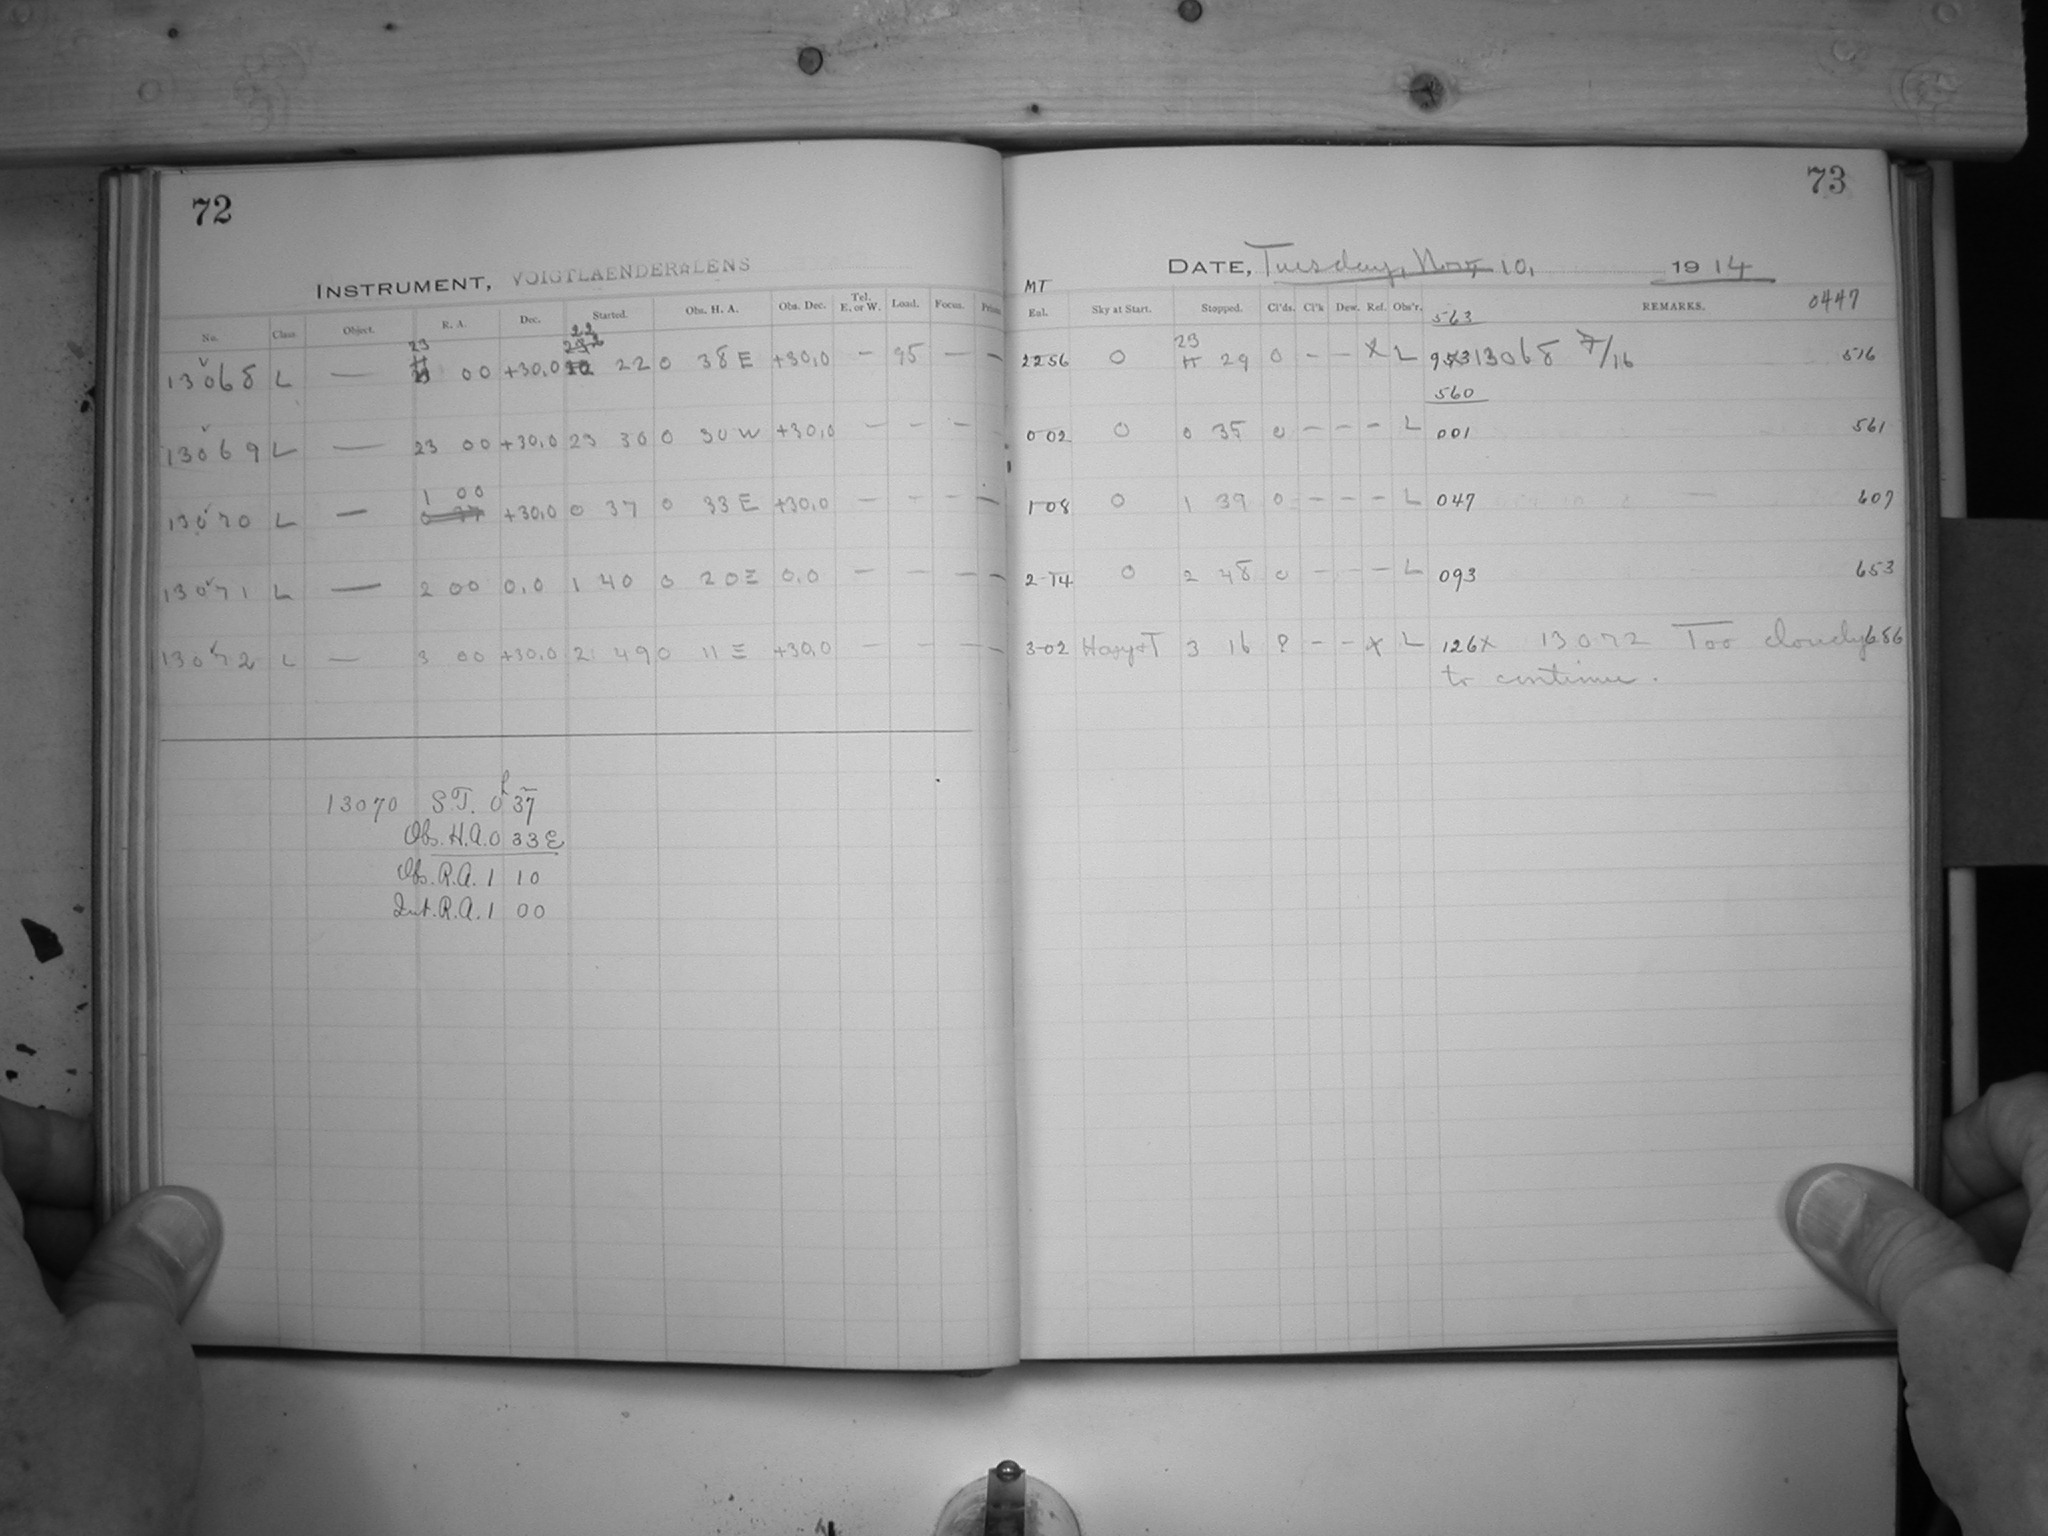 72
INSTRUMENT, VOIGTLAENDER LENS
No. Class Object. R. A. Dec. Started. Obs. H. A. Obs. Dec. Tel. E. or W. Load. Focus. Prism
23 22
13068 L — 00 +30,0 22 0 38 E +30,0 — 95 — —
13069 L — 23 00 +30,0 23 30 0 30 W +30,0 — — — —
1 00
13070 L — 0 37 +30,0 0 37 0 33 E +30,0 — — — —
13071 L — 2 00 0,0 1 40 0 20 E 0,0 — — — —
13072 L — 3 00 +30,0 2 49 0 11 E +30,0 — — — —
13070 S.T. 0h 37
Obs. H.A. 0 33 E
Obs. R.A. 1 10
Int. R.A. 1 00
73
DATE, Tuesday, Nov, 10, 1914
MT
Eal. Sky at Start. Stopped. Cl'ds. Cl'k Dew. Ref. Obs'r. REMARKS. 0447
563
23
2256 0 29 0 — — X L 13068 7/16 516
560
0-02 0 0 35 0 — — — L 001 561
1-08 0 1 39 0 — — — L 047 607
2-14 0 2 48 0 — — — L 093 653
3-02 3 16 ? — — X L 126X 13072 Too cloudy 686
to continue.